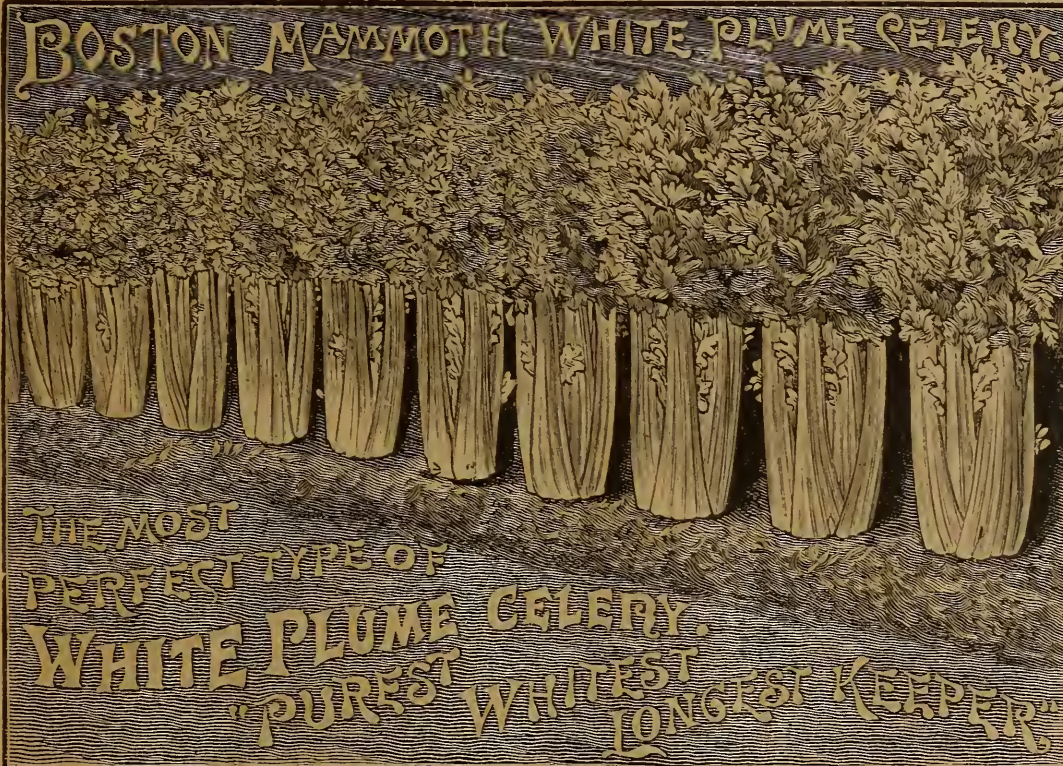 BOSTON MAMMOTH WHITE PLUME CELERY
THE MOST
PERFECT TYPE OF
WHITE PLUME CELERY.
"PUREST WHITEST
LONGEST KEEPER,"